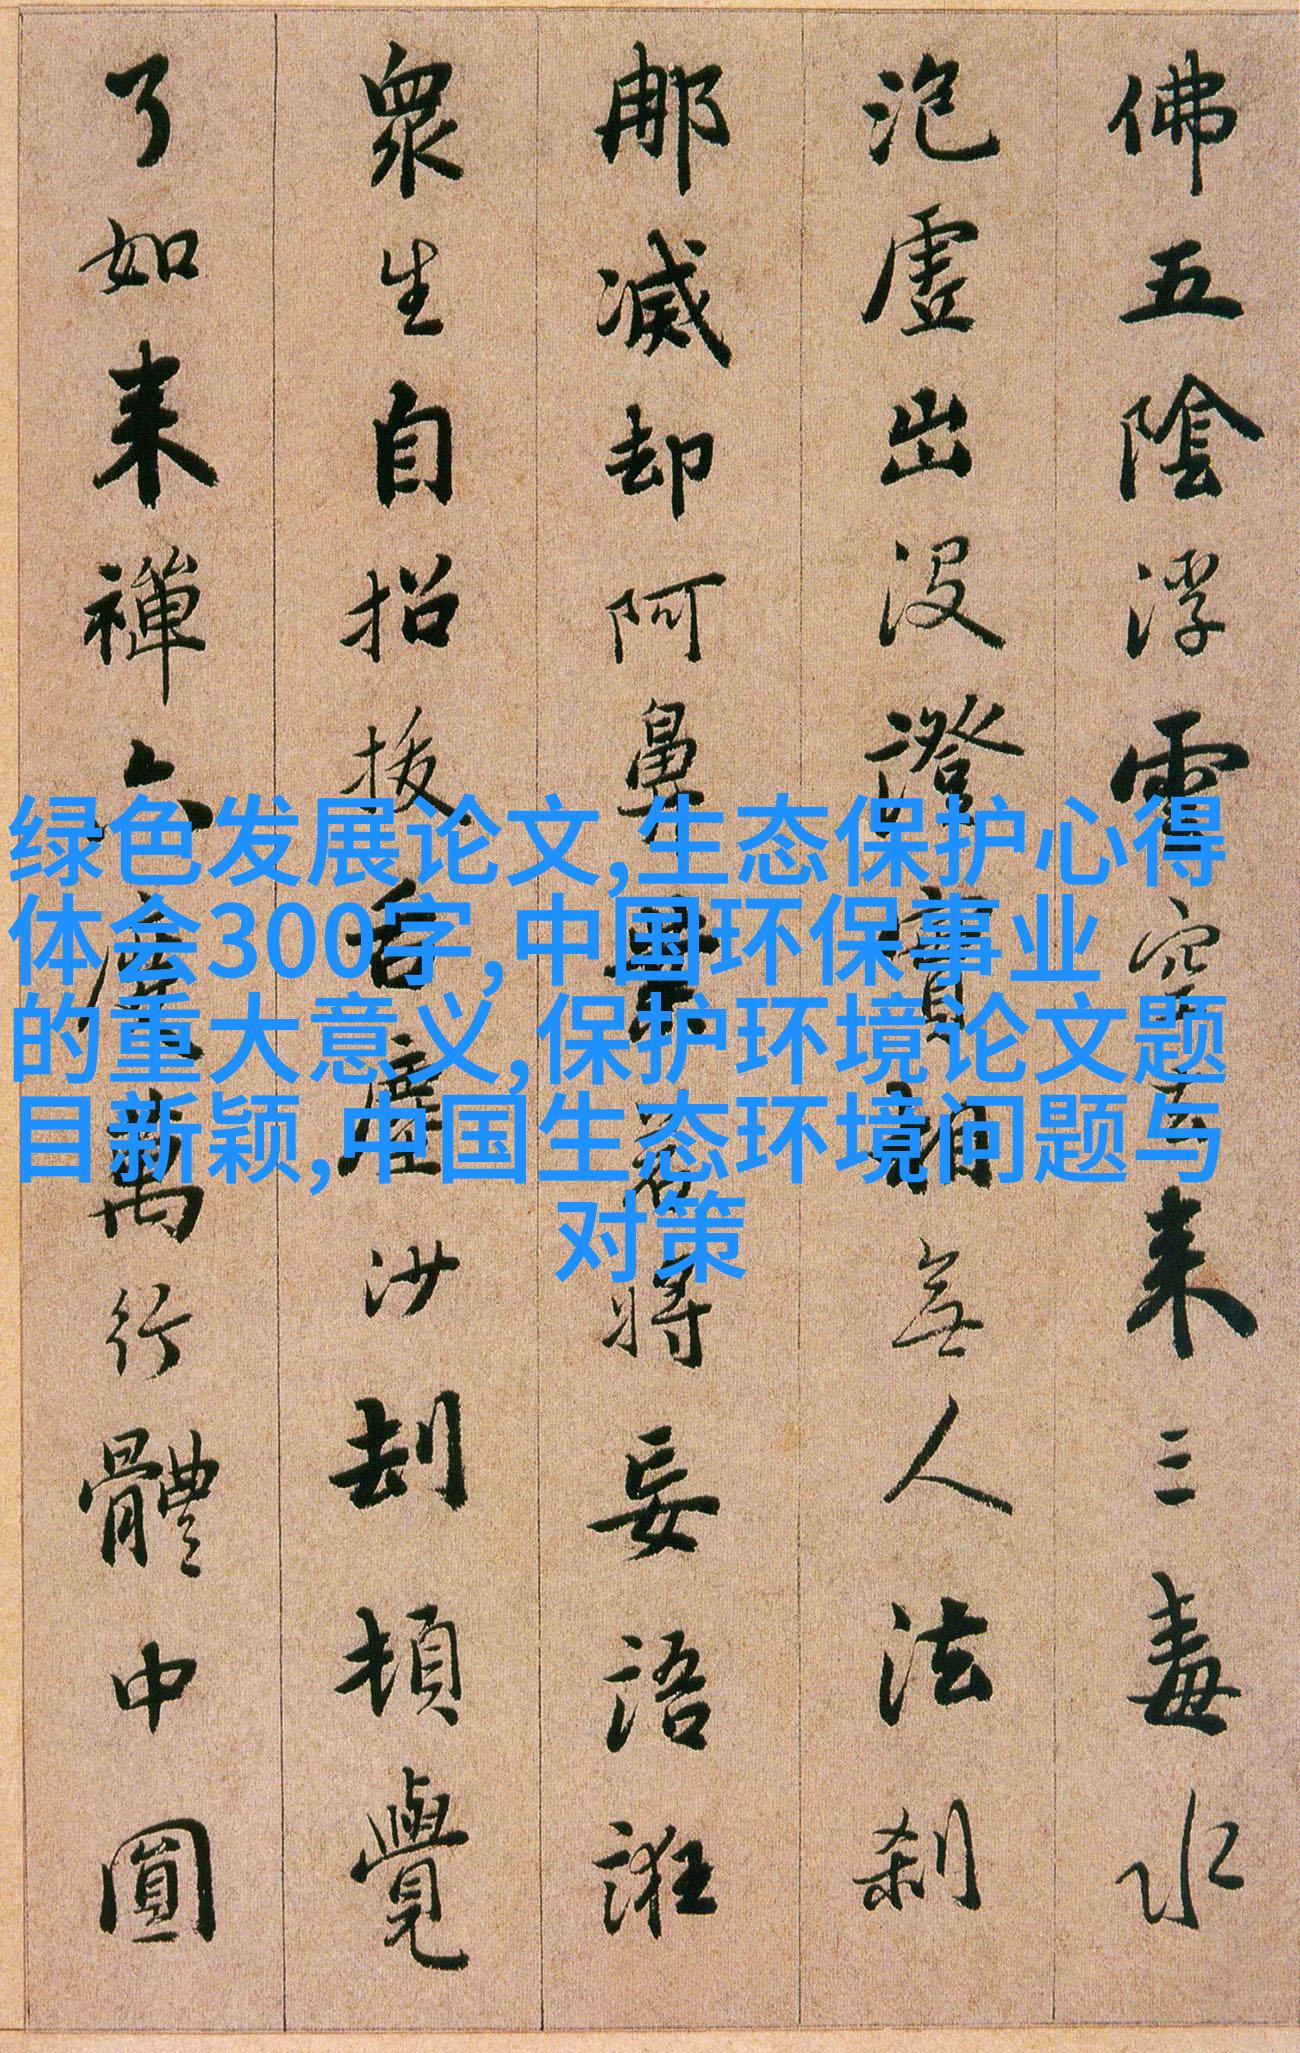 佛五陰浮雲空去来三毒水
泡虛出没證實相無人法刹
那滅却阿鼻業若將妄語誑
衆生自招拔舌塵沙劫頓覺
了如来禪六度萬行體中圓
绿色发展论文,生态保护心得
体会300字,中国环保事业
的重大意义,保护环境论文题
目新颖,中国生态环境问题与
对策